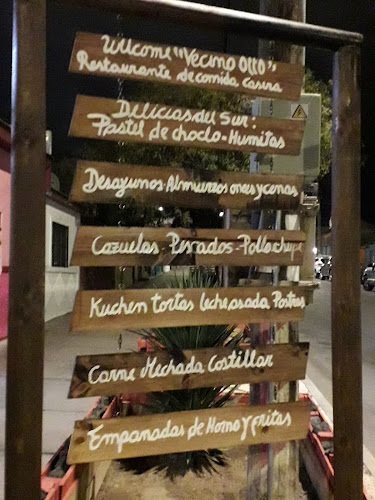 Wilcome "Vecino Otto"
Restaurante de comida casera
Delicias del Sur:
Pastel de choclo-Humitas
Desayunos-Almuerzos onces y cenas
Cazuelas-Pescados-Pollo chips
Kuchen tortas leche asada Postres
Carne Mechada Costillar
Empanadas de Horno y fritas